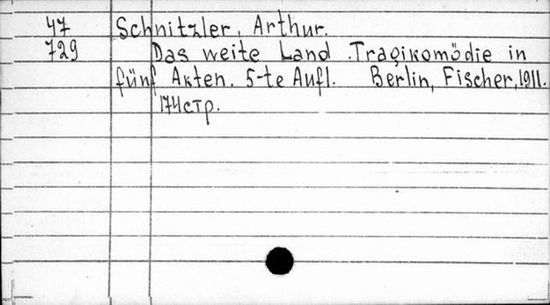 47 Schnitzler, Arthur.
729 Das weite Land. Tragikomödie in
fünf Akten. 5-te Aufl. Berlin, Fischer, 1911.
174стр.